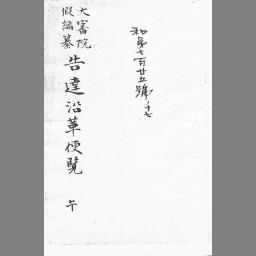 和第七百廿五號ノ十七
大審院
假編纂
告達沿革便覽 午